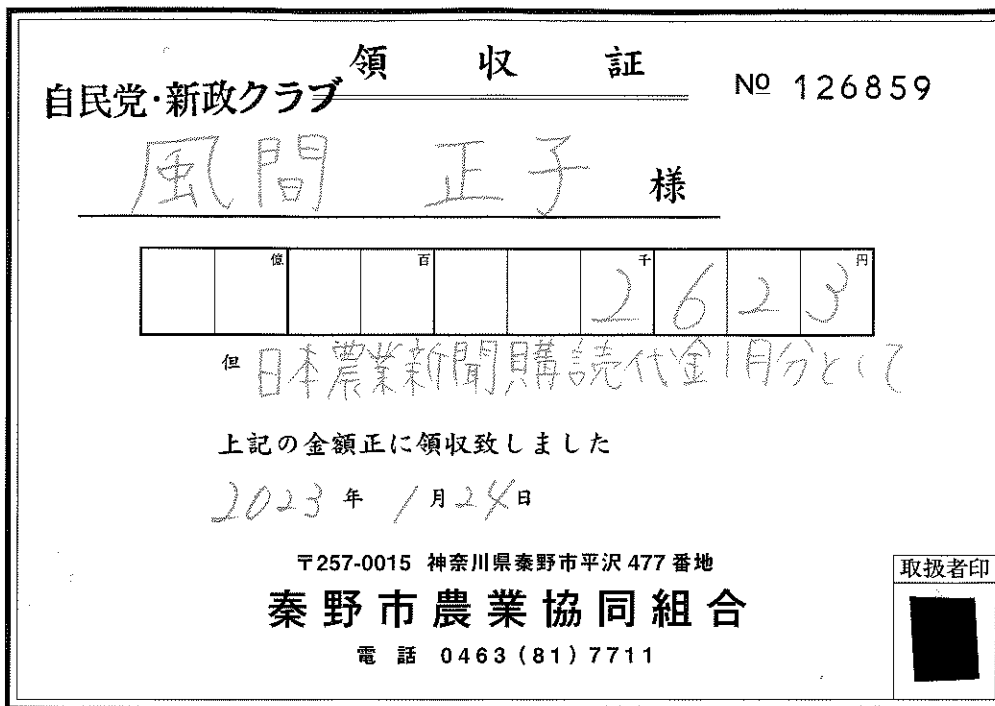 領収証
自民党・新政クラブ
№ 126859
風間 正子 様
億 百 千 円
2 6 2 3
但 日本農業新聞購読代金1月分として
上記の金額正に領収致しました
2023年 1月24日
〒257-0015 神奈川県秦野市平沢477番地
秦野市農業協同組合
電話 0463(81)7711
取扱者印